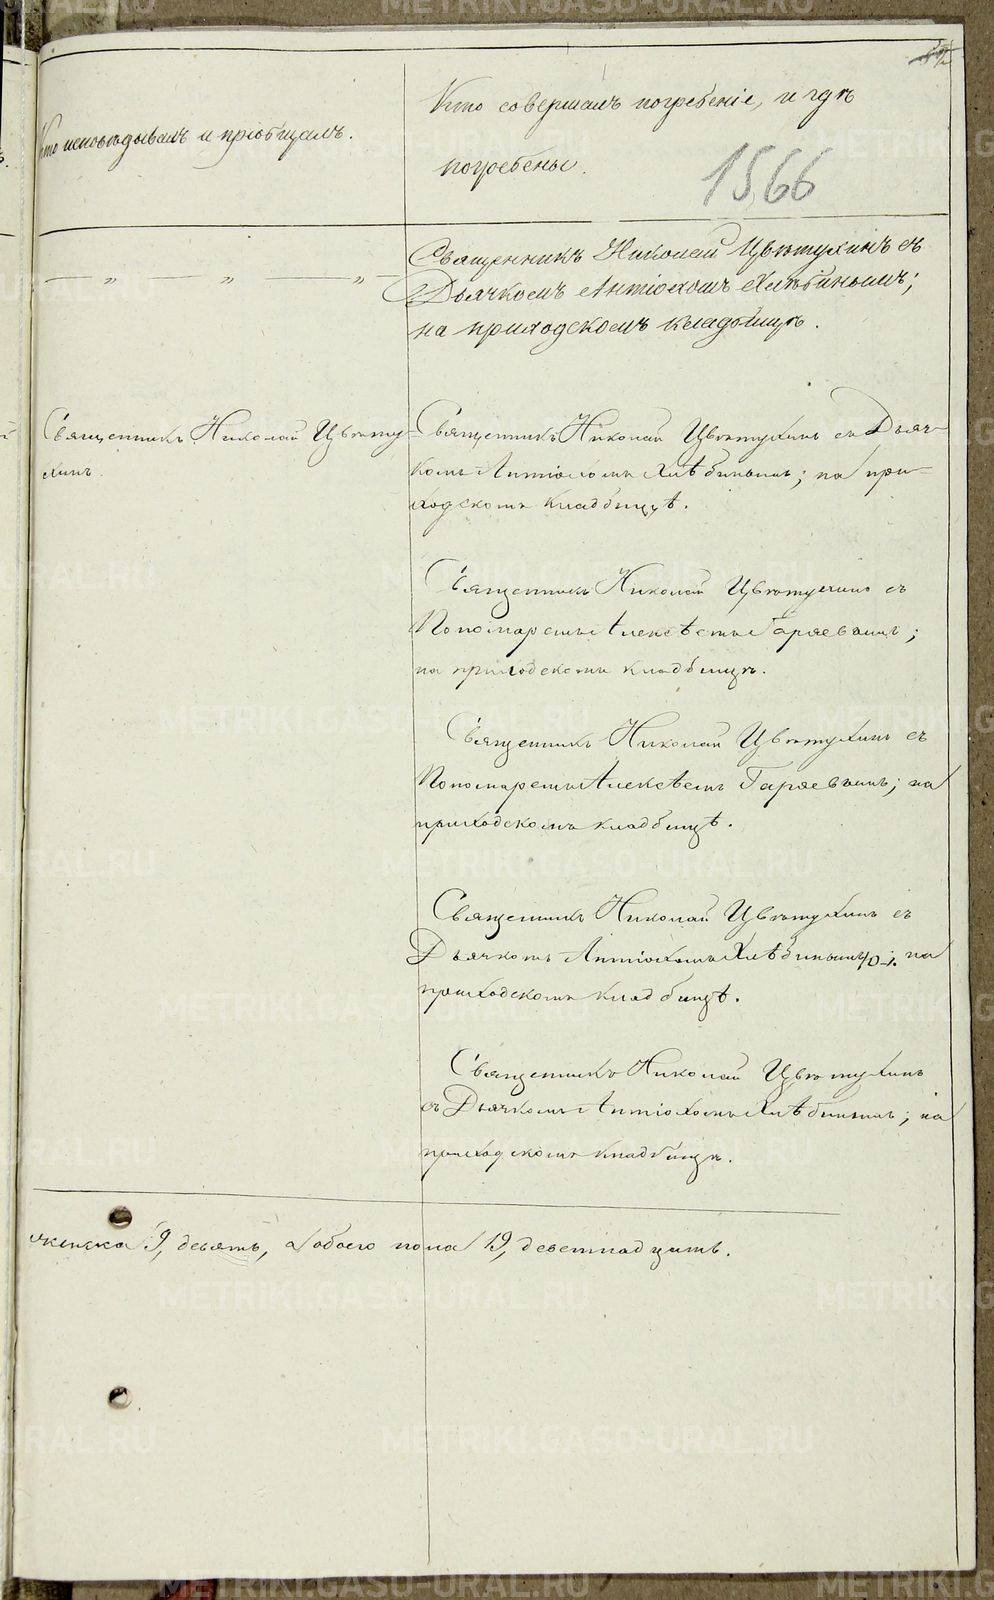 Кто исповѣдывалъ и пріобщалъ.
Кто совершалъ погребеніе, и гдѣ
погребены.
1566
— „ — „ — „ —
Священникъ Николай Цвѣтухинъ съ
Дьячкомъ Антіохомъ Хлѣбинымъ;
на приходскомъ кладбищѣ.
Священникъ Николай Цвѣту-
хинъ.
Священникъ Николай Цвѣтухинъ съ Дьяч-
комъ Антіохомъ Хлѣбинымъ; на при-
ходскомъ кладбищѣ.
Священникъ Николай Цвѣтухинъ съ
Пономаремъ Алексѣемъ Гаряевымъ;
на приходскомъ кладбищѣ.
Священникъ Николай Цвѣтухинъ съ
Пономаремъ Алексѣемъ Гаряевымъ; на
приходскомъ кладбищѣ.
Священникъ Николай Цвѣтухинъ съ
Дьячкомъ Антіохомъ Хлѣбинымъ на
приходскомъ кладбищѣ.
Священникъ Николай Цвѣтухинъ
съ Дьячкомъ Антіохомъ Хлѣбинымъ; на
приходскомъ кладбищѣ.
женска 9, девять, а обоего пола 19, девятнадцать.
METRIKI.GASO-URAL.RU